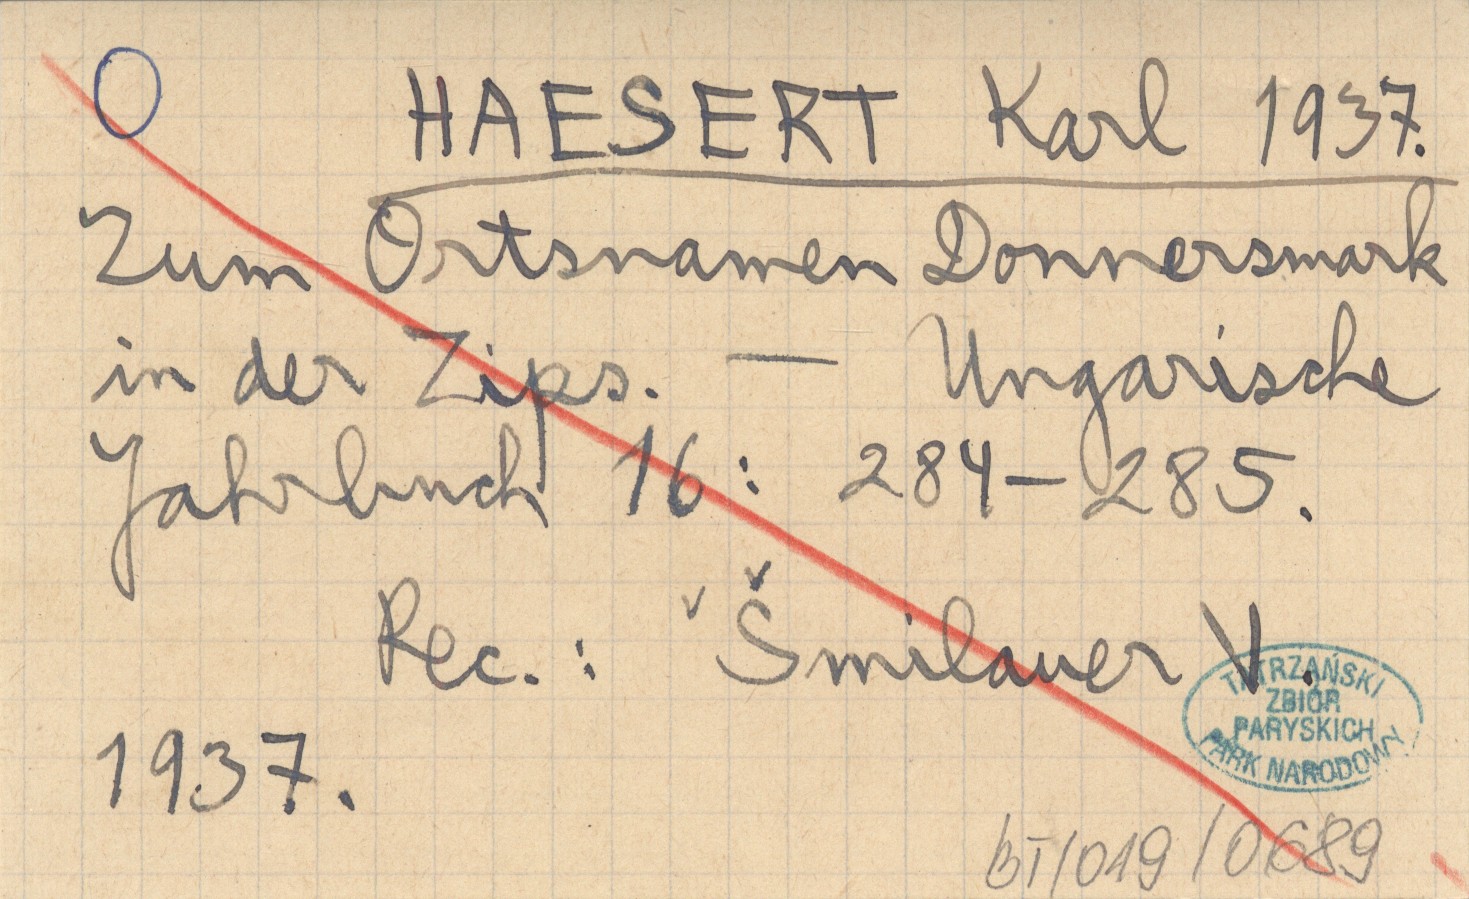 HAESERT Karl 1937.
Zum Ortsnamen Donnersmark
in der Zips. — Ungarische
Jahrbuch 16: 284-285.
Rec.: Šmilauer V.
1937.
TATRZAŃSKI
ZBIÓR
PARYSKICH
PARK NARODOWY
BT/019/0689